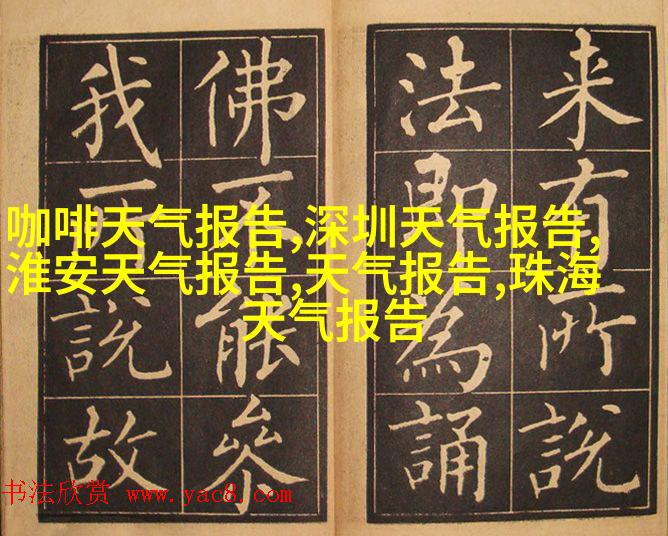 咖啡天气报告,深圳天气报告,
淮安天气报告,天气报告,珠海
天气报告
来有所說
法即為誦
佛不能參
我所說故
书法欣赏 www.yac8.com